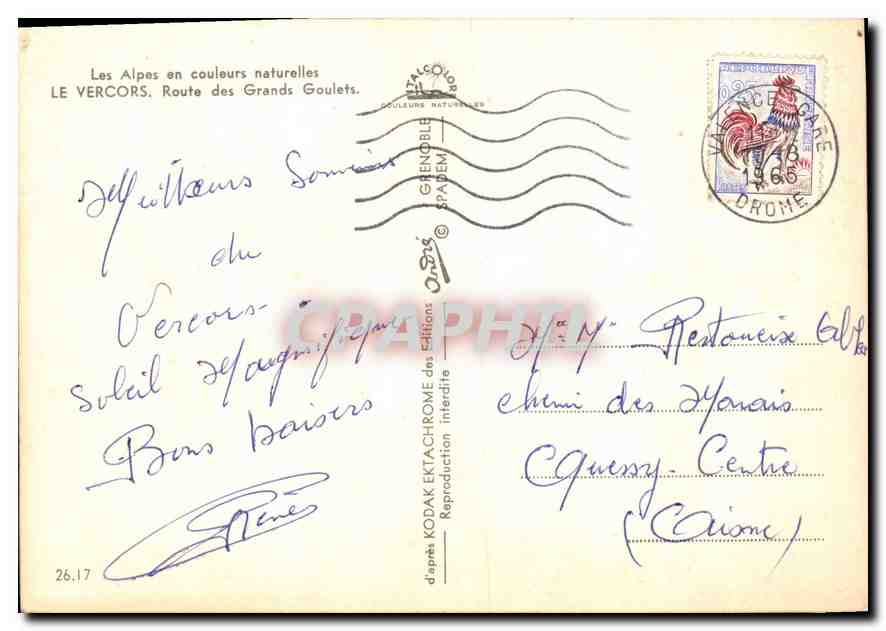 Les Alpes en couleurs naturelles
LE VERCORS. Route des Grands Goulets.
ITALCOLOR
COULEURS NATURELLES
VALENCE GARE
1965
DROME
Meilleurs Souvenirs
du
Vercors-
Soleil Magnifique
Bons baisers
René
26.17
d'après KODAK EKTACHROME des Editions André © GRENOBLE
Reproduction interdite SPADEM
CPAPHIL
Mr Me
chemin des Marais
Quessy-Centre
(Aisne)